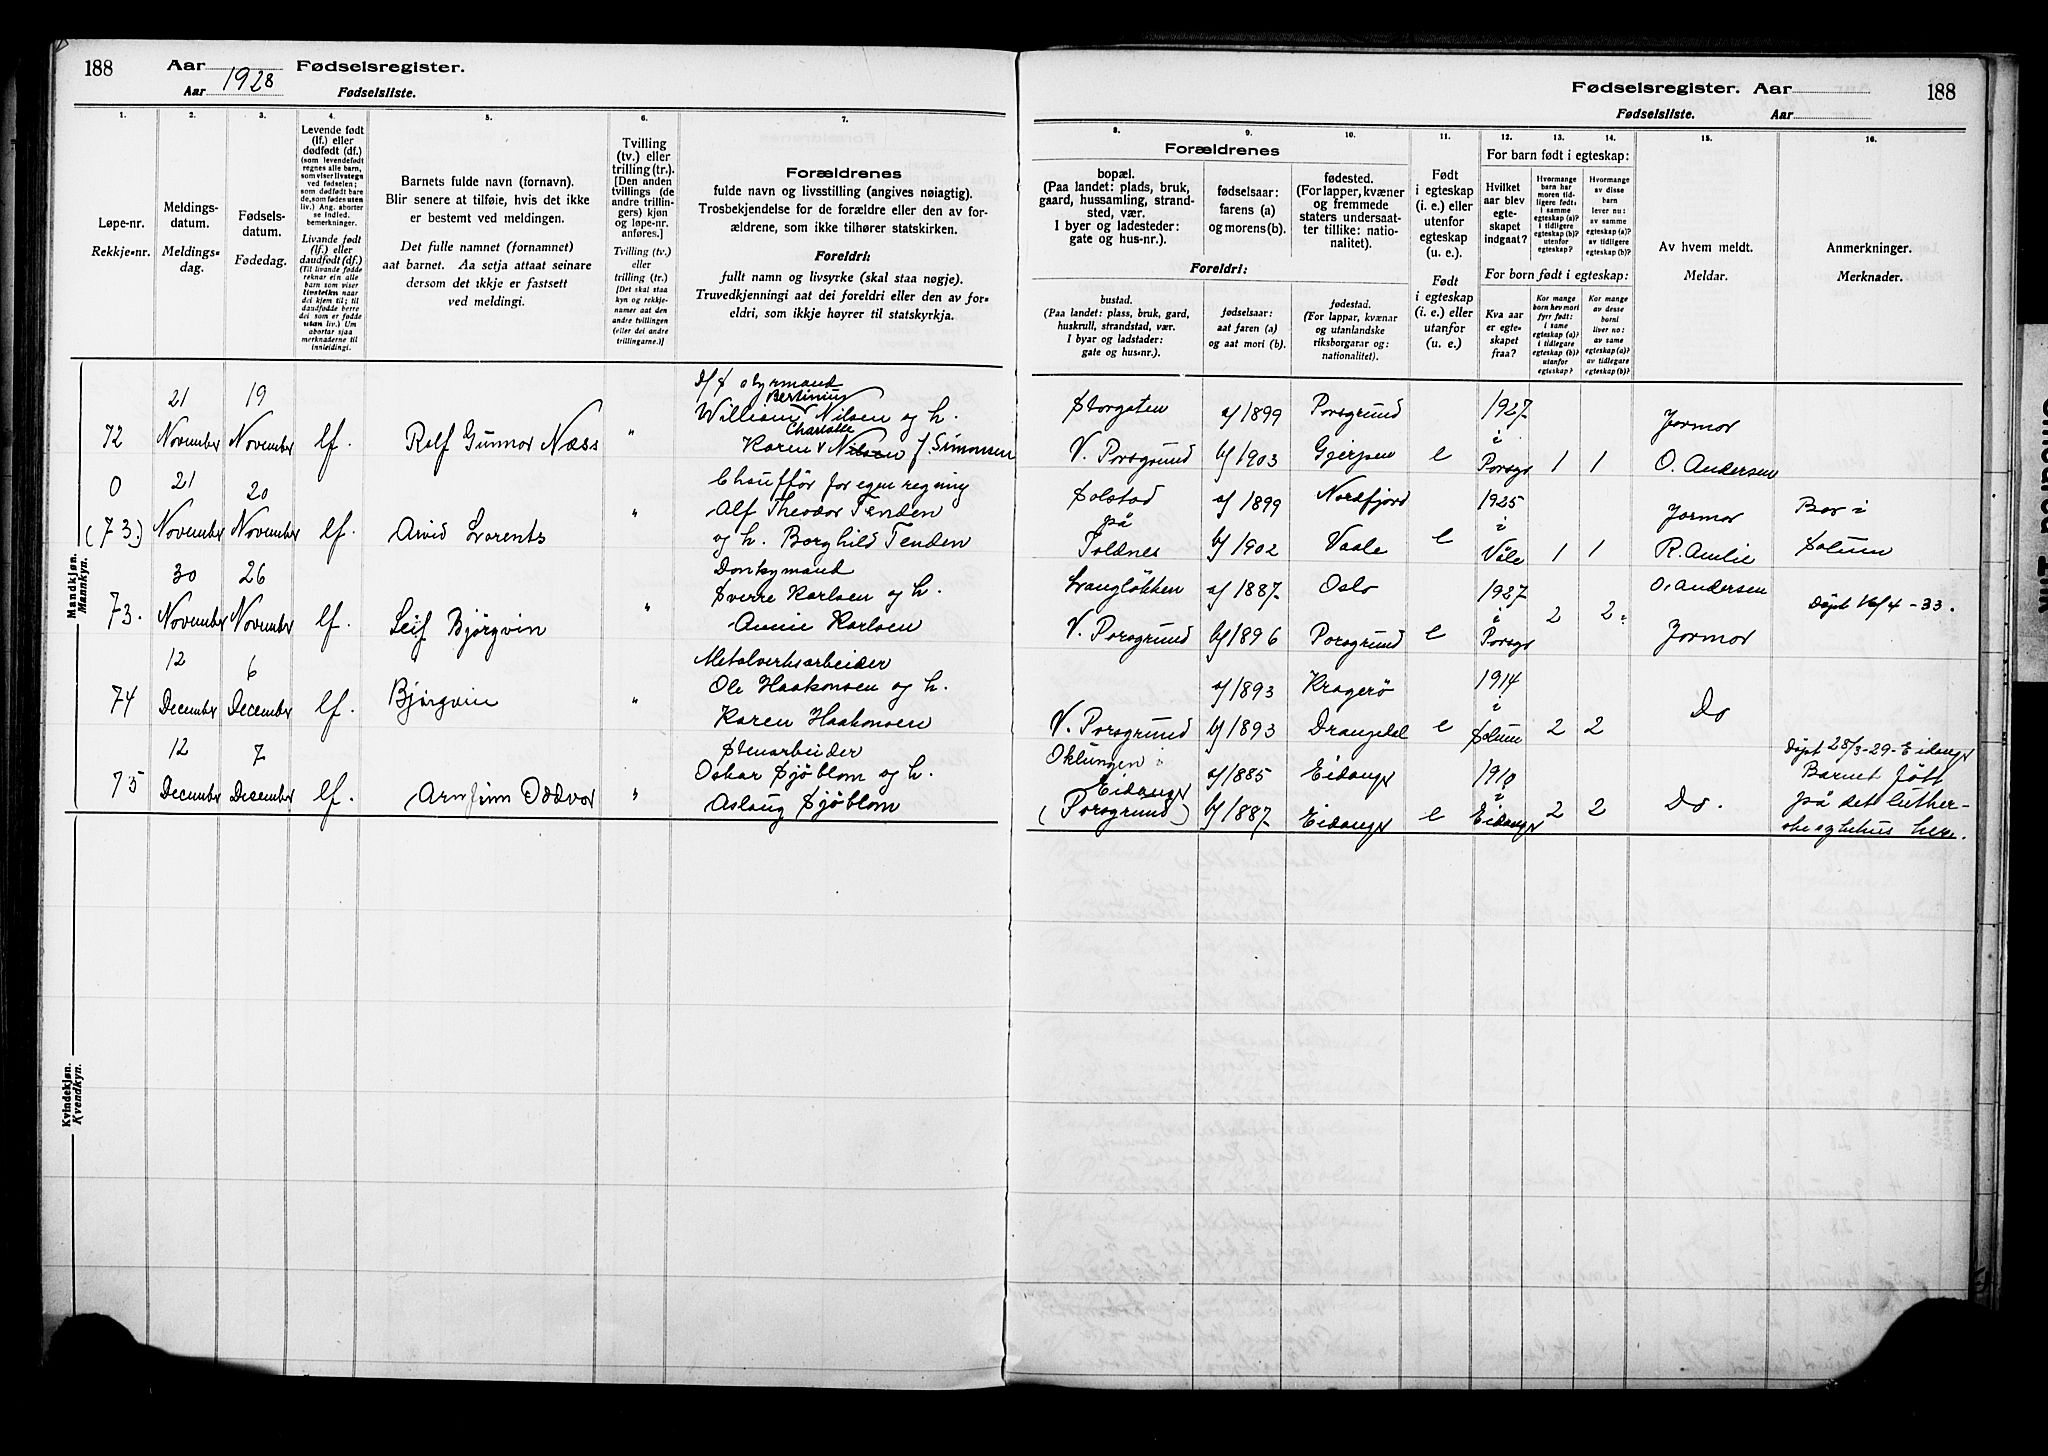 188
Aar 1928 Fødselsregister.
Aar Fødselsliste.
1. 2. 3. 4. 5. 6. 7.
Løpe-nr.
Rekkje-nr.
Meldings-
datum.
Meldings-
dag.
Fødsels-
datum.
Fødedag.
Levende født
(lf.) eller
dødfødt (df.)
(som levendefødt
regnes alle barn,
som viser livstegn
ved fødselen;
som dødfødt bare
de, som fødes uten
liv.) Ang. aborter
se indled.
bemerkninger.
Livande født
(lf.) eller
daudfødt (df.)
(Til livande fødde
reknar ein alle
barn som viser
livsteikn naar
dei kjem til; til
daudfødde berre
dei som er fødde
utan liv.) Um
abortar sjaa
merknaderne til
innleidingi.
Barnets fulde navn (fornavn).
Blir senere at tilføie, hvis det ikke
er bestemt ved meldingen.
Det fulle namnet (fornamnet)
aat barnet. Aa setja attaat seinare
dersom det ikkje er fastsett
ved meldingi.
Tvilling
(tv.) eller
trilling (tr.).
[Den anden
tvillings (de
andre trillin-
gers) kjøn
og løpe-nr.
anføres.]
Tvilling (tv.)
eller
trilling (tr.)
[Det skal staa
kyn og rekkje-
namer aat den
andre tvillingen
(eller dei andre
trillingarne.)]
Forældrenes
fulde navn og livsstilling (angives nøiagtig).
Trosbekjendelse for de forældre eller den av for-
ældrene, som ikke tilhører statskirken.
Foreldri:
fullt namn og livsyrke (skal staa nøgje).
Truvedkjenningi aat dei foreldri eller den av for-
eldri, som ikkje høyrer til statskyrkja.
Mandkjøn.
Mannkyn.
72
21
November
19
November
lf.
Rolf Gunnor Næss
"
D/S styrmand
Bertinius
William Nilsen og h.
Charlotte
Karen Nilsen f. Simonsen
0
(73.)
21
November
20
November
lf.
Arvid Lorents
"
Chauffør for egen regning
Alf Theodor Tenden
og h. Borghild Tenden
73.
30
November
26
November
lf.
Leif Bjørgvin
"
Donkymand
Sverre Karlsen og h.
Annie Karlsen
74
12
December
6
December
lf.
Bjørgvin
"
Metalverksarbeider
Ole Haakonsen og h.
Karen Haakonsen
75
12
December
7
December
lf.
Arnfinn Oddvar
"
Stenarbeider
Oskar Sjøblom og h.
Aslaug Sjøblom
Kvindekjøn.
Kvendkyn.
Fødselsregister. Aar
188
Fødselsliste. Aar
8. 9. 10. 11. 12. 13. 14. 15. 16.
Forældrenes
bopæl.
(Paa landet: plads, bruk,
gaard, hussamling, strand-
sted, vær.
I byer og ladesteder:
gate og hus-nr.).
fødselsaar:
farens (a)
og morens (b).
fødested.
(For lapper, kvæner
og fremmede
staters undersaat-
ter tillike: natio-
nalitet).
Foreldri:
bustad.
(Paa landet: plass, bruk, gard,
huskrull, strandstad, vær.
I byar og ladstader:
gate og hus-nr.).
fødselsaar:
aat faren (a)
og aat mori (b).
fødestad.
(For lappar, kvænar
og utanlandske
riksborgarar og:
nationalitet).
Født
i egteskap
(i. e.) eller
utenfor
egteskap
(u. e.).
Født
i egteskap
(i. e.) eller
utanfor
(u. e.)
For barn født i egteskap:
Hvilket
aar blev
egte-
skapet
indgaat?
Hvormange
barn har
moren tid-
ligere født:
i samme
egteskap (a)?
i tidligere
egteskap (b)?
utenfor
egteskap?
Hvormange
av disse
barn
lever nu:
av samme
egteskap (a)?
av tidligere
egteskap (b)?
For born født i egteskap:
Kva aar
er egte-
skapet
fraa?
Kor mange
born hev mori
fyrr født:
i same
egteskap (a)?
i tidlegare
egteskap (b)?
utanfor
egteskap?
Kor mange
av desse
borni
liver no:
av same
egteskap (a)?
av tidlegare
egteskap (b)?
Av hvem meldt.
Meldar.
Anmerkninger.
Merknader.
Storgaten
V. Porsgrund
a/1899
b/1903
Porsgrund
Gjerpen
e
1927
i
Porsgr
1
1
Jormor
O. Andersen
Solstad
på
Toldnes
a/1899
b/1902
Nordfjord
Vaale
e
1925
i
Våle
1
1
Jormor
R. Amlie
Bor i
Solum
Langløkken
V. Porsgrund
a/1887
b/1896
Oslo
Porsgrund
e
1927
i
Porsgr
2
2
O. Andersen
Jormor
Døpt 16/4-33.
V. Porsgrund
a/1893
b/1893
Kragerö
Drangedal
e
1914
i
Solum
2
2
Do
Oklungen i
Eidanger
(Porsgrund)
a/1885
b/1887
Eidanger
Eidanger
e
1910
i
Eidanger
2
2
Do.
Døpt 28/3-29-Eidanger
Barnet född
på det luther-
ske sykehus her.